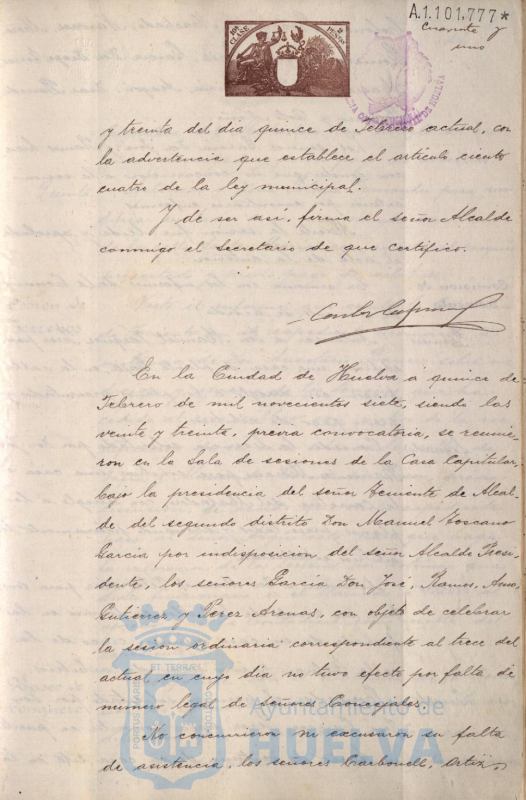 10ª CLASE
2 PESETAS
A.1.101.777*
Cuarenta y
uno
DE HUELVA
y treinta del dia quince de Febrero actual, con
la advertencia que establece el artículo ciento
cuatro de la ley municipal.
Y de ser así, firma el señor Alcalde
conmigo el Secretario de que certifico.
En la Ciudad de Huelva á quince de
Febrero de mil novecientos siete, siendo las
veinte y treinta, previa convocatoria, se reunie-
ron en la Sala de sesiones de la Casa Capitular,
bajo la presidencia del señor Teniente de Alcal-
de del segundo distrito Don Manuel Toscano
Garcia por indisposicion del señor Alcalde Presi-
dente, los señores Garcia Don José, Ramos,
Gutierrez y Perez Arenas, con objeto de celebrar
la sesion ordinaria correspondiente al trece del
actual, en cuyo dia no tuvo efecto por falta de
número legal de señores Concejales.
No concurrieron ni excusaron su falta
de asistencia, los señores Carbonell, Ortiz,
PORTUS MARIS ET TERRAE CUSTODIA
Ayuntamiento de
HUELVA